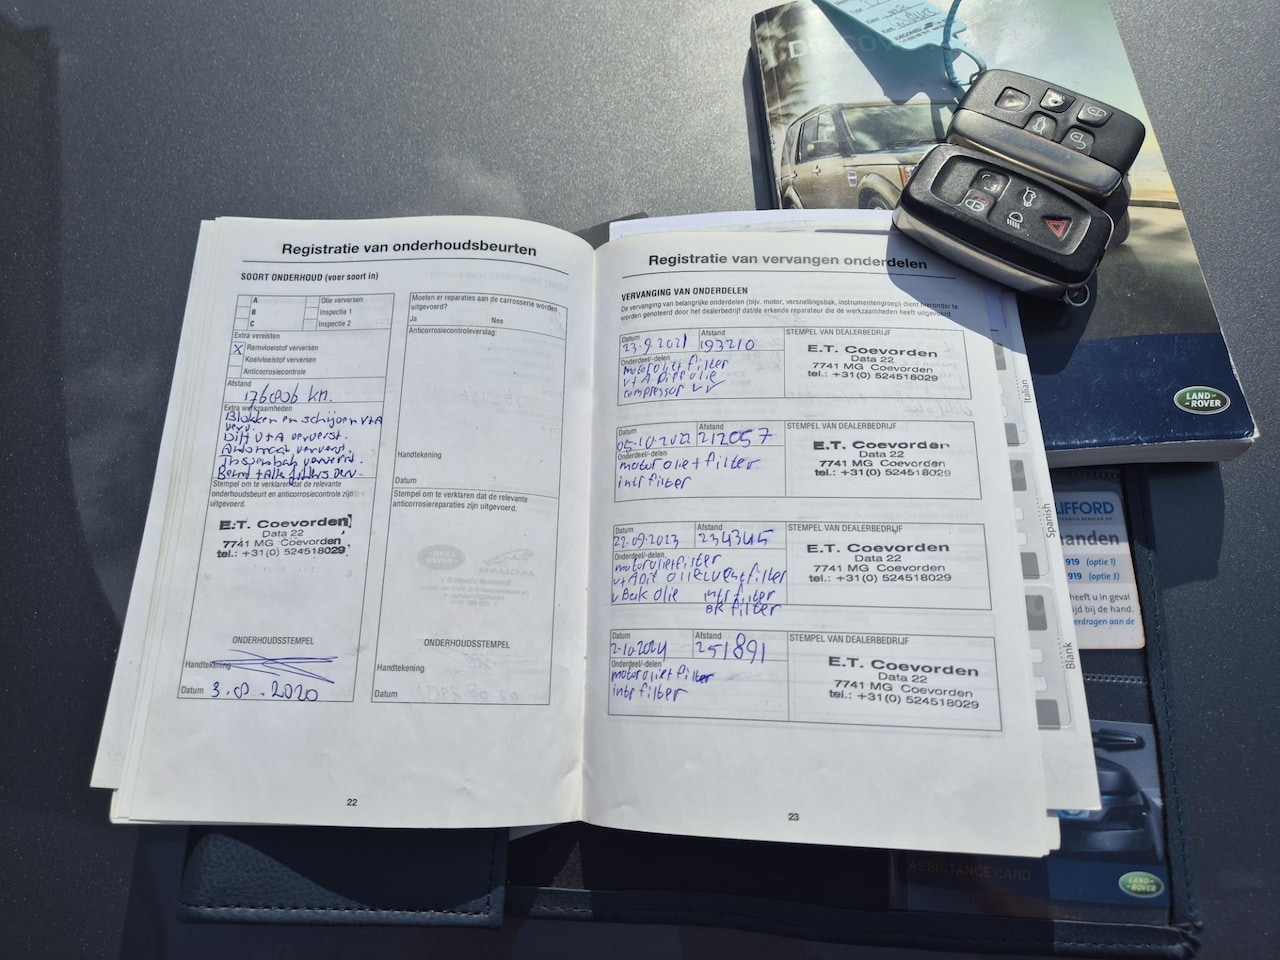 DISCOVERY
LAND-
ROVER
Registratie van onderhoudsbeurten
SOORT ONDERHOUD (voer soort in)
A
B
C
Olie verversen
Inspectie 1
Inspectie 2
Extra vereisten
X Remvloeistof verversen
Koelvloeistof verversen
Anticorrosiecontrole
Afstand
176806 km.
Extra werkzaamheden
Blokken en schijven V+A
verv.
Diff V+A ververst.
Automaat ververst.
Stempel om te verklaren dat de relevante
onderhoudsbeurt en anticorrosiecontrole zijn
uitgevoerd.
E.T. Coevorden
Data 22
7741 MG Coevorden
tel.: +31(0) 524518029
ONDERHOUDSSTEMPEL
Handtekening
Datum 3.8.2020
Moeten er reparaties aan de carrosserie worden
uitgevoerd?
Ja Nee
Anticorrosiecontroleverslag:
Handtekening
Datum
Stempel om te verklaren dat de relevante
anticorrosiereparaties zijn uitgevoerd.
ONDERHOUDSSTEMPEL
Handtekening
Datum
22
Registratie van vervangen onderdelen
VERVANGING VAN ONDERDELEN
De vervanging van belangrijke onderdelen (bijv. motor, versnellingsbak, instrumentengroep) dient hieronder te
worden genoteerd door het dealerbedrijf dat/de erkende reparateur die de werkzaamheden heeft uitgevoerd.
Datum Afstand STEMPEL VAN DEALERBEDRIJF
23.9.2021 193210
Onderdeel/-delen
motorolie+filter
V+A Diff olie
compressor VV
E.T. Coevorden
Data 22
7741 MG Coevorden
tel.: +31(0) 524518029
Datum Afstand STEMPEL VAN DEALERBEDRIJF
05-10-2022 212057
Onderdeel/-delen
motorolie+filter
intrfilter
E.T. Coevorden
Data 22
7741 MG Coevorden
tel.: +31(0) 524518029
Datum Afstand STEMPEL VAN DEALERBEDRIJF
22.09.2023 234345
Onderdeel/-delen
motorolie+filter
intrfilter
vBak olie
BR filter
E.T. Coevorden
Data 22
7741 MG Coevorden
tel.: +31(0) 524518029
Datum Afstand STEMPEL VAN DEALERBEDRIJF
2-10-2024 251891
Onderdeel/-delen
motorolie+filter
intrfilter
E.T. Coevorden
Data 22
7741 MG Coevorden
tel.: +31(0) 524518029
23
Italian
Spanish
Blank
IFFORD
anden
919 (optie 1)
919 (optie 3)
heeft u in geval
ijd bij de hand.
erdragen aan de
ASSISTANCE CARD
LAND-
ROVER